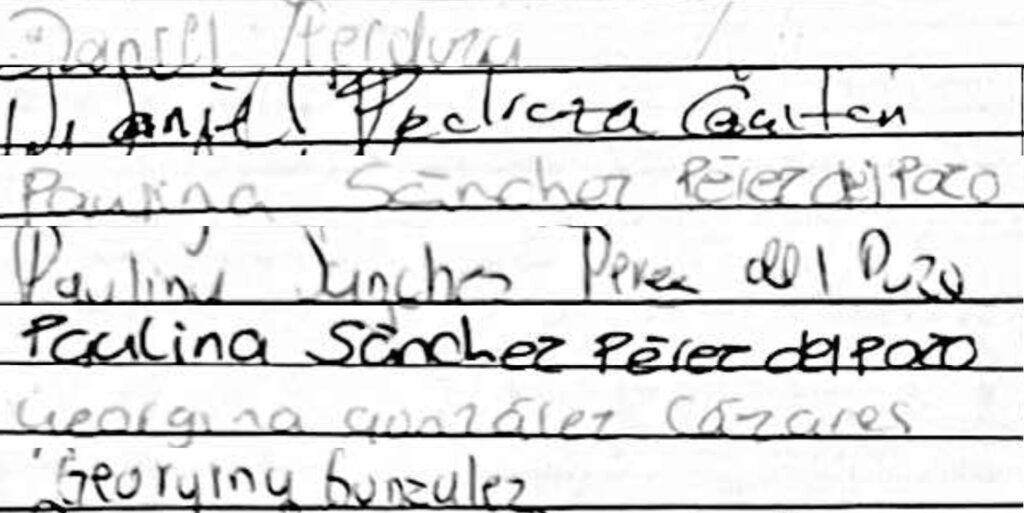 Daniel
Daniel Pedraza Gaitan
Paulina Sánchez Pérez del Pozo
Paulina Sanchez Perez del Pozo
Paulina Sánchez Pérez del Pozo
Georgina González Cázares
Georgina Gonzalez